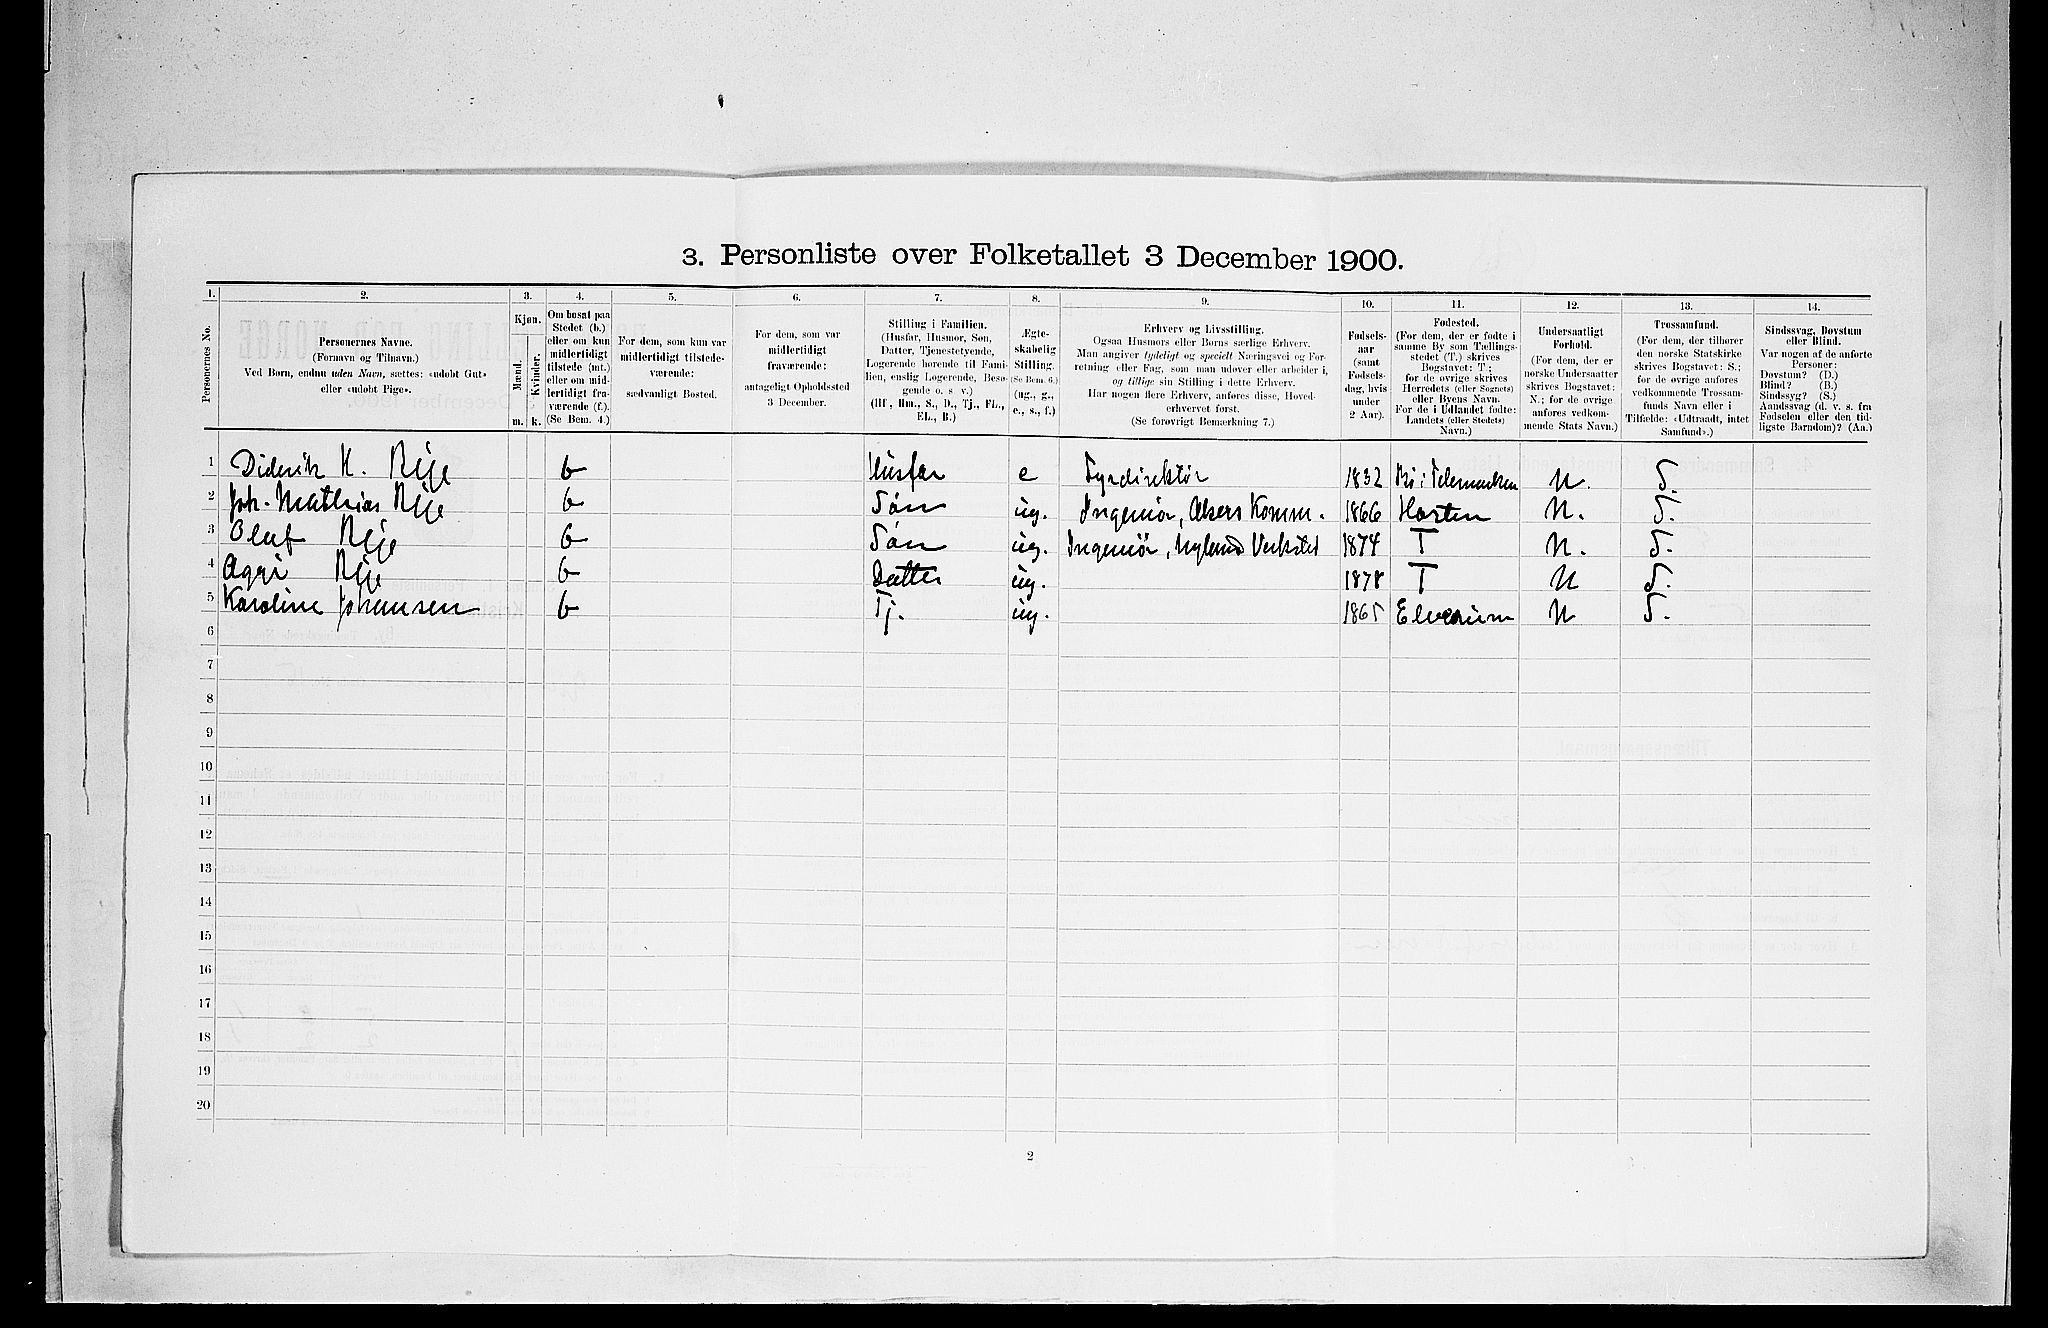 3. Personliste over Folketallet 3 December 1900.
1. 2. 3. 4. 5. 6. 7. 8. 9. 10. 11. 12. 13. 14.
Personernes No.
Personernes Navne.
(Fornavn og Tilnavn.)
Ved Børn, endnu uden Navn, sættes: «udøbt Gut»
eller «udøbt Pige».
Kjøn.
Mænd.
Kvinder.
m. k.
Om bosat paa
Stedet (b.)
eller om kun
midlertidigt
tilstede (mt.)
eller om mid-
lertidigt fra-
værende (f.).
(Se Bem. 4.)
For dem, som kun var
midlertidigt tilstede-
værende:
sædvanligt Bosted.
For dem, som var
midlertidigt
fraværende:
antageligt Opholdssted
3 December.
Stilling i Familien.
(Husfar, Husmor, Søn,
Datter, Tjenestetyende,
Logerende hørende til Fami-
lien, enslig Logerende, Besø-
gende o. s. v.)
(Hf., Hm., S., D., Tj., FL.,
EL., B.)
Ægte-
skabelig
Stilling.
(Se Bem. 6.)
(ug., g.,
e., s., f.)
Erhverv og Livsstilling.
Ogsaa Husmors eller Børns særlige Erhverv.
Man angiver tydeligt og specielt Næringsvei og For-
retning eller Fag, som man udøver eller arbeider i,
og tillige sin Stilling i dette Erhverv.
Har nogen flere Erhverv, anføres disse, Hoved-
erhvervet først.
(Se forøvrigt Bemærkning 7.)
Fødsels-
aar
(samt
Fødsels-
dag, hvis
under
2 Aar).
Fødested.
(For dem, der er fødte i
samme By som Tællings-
stedet (T.) skrives
Bogstavet: T.;
for de øvrige skrives
Herredets (eller Sognets)
eller Byens Navn.
For de i Udlandet fødte:
Landets (eller Stedets)
Navn.)
Undersaatligt
Forhold.
(For dem, der er
norske Undersaatter
skrives Bogstavet:
N.; for de øvrige
anføres vedkom-
mende Stats Navn.)
Trossamfund.
(For dem, der tilhører
den norske Statskirke
skrives Bogstavet: S.;
for de øvrige anføres
vedkommende Trossam-
funds Navn eller i
Tilfælde: «Udtraadt, intet
Samfund».)
Sindssvag, Døvstum
eller Blind.
Var nogen af de anførte
Personer:
Døvstum? (D.)
Blind? (B.)
Sindssyg? (S.)
Aandssvag (d. v. s. fra
Fødselen eller den tid-
ligste Barndom)? (Aa.)
1 Diderik H. b Husfar e Fyrdirektør 1832 Bø i Telemarken N. S.
2 Joh. Mathias b Søn ug. Ingeniør, Akers Komm. 1866 Horten N. S.
3 Olaf b Søn ug. Ingeniør, Nylands Verksted 1874 T N. S.
4 b Datter ug. 1878 T N S.
5 Karoline Johansen b Tj. ug. 1865 Elverum N S.
6
7
8
9
10
11
12
13
14
15
16
17
18
19
20
2